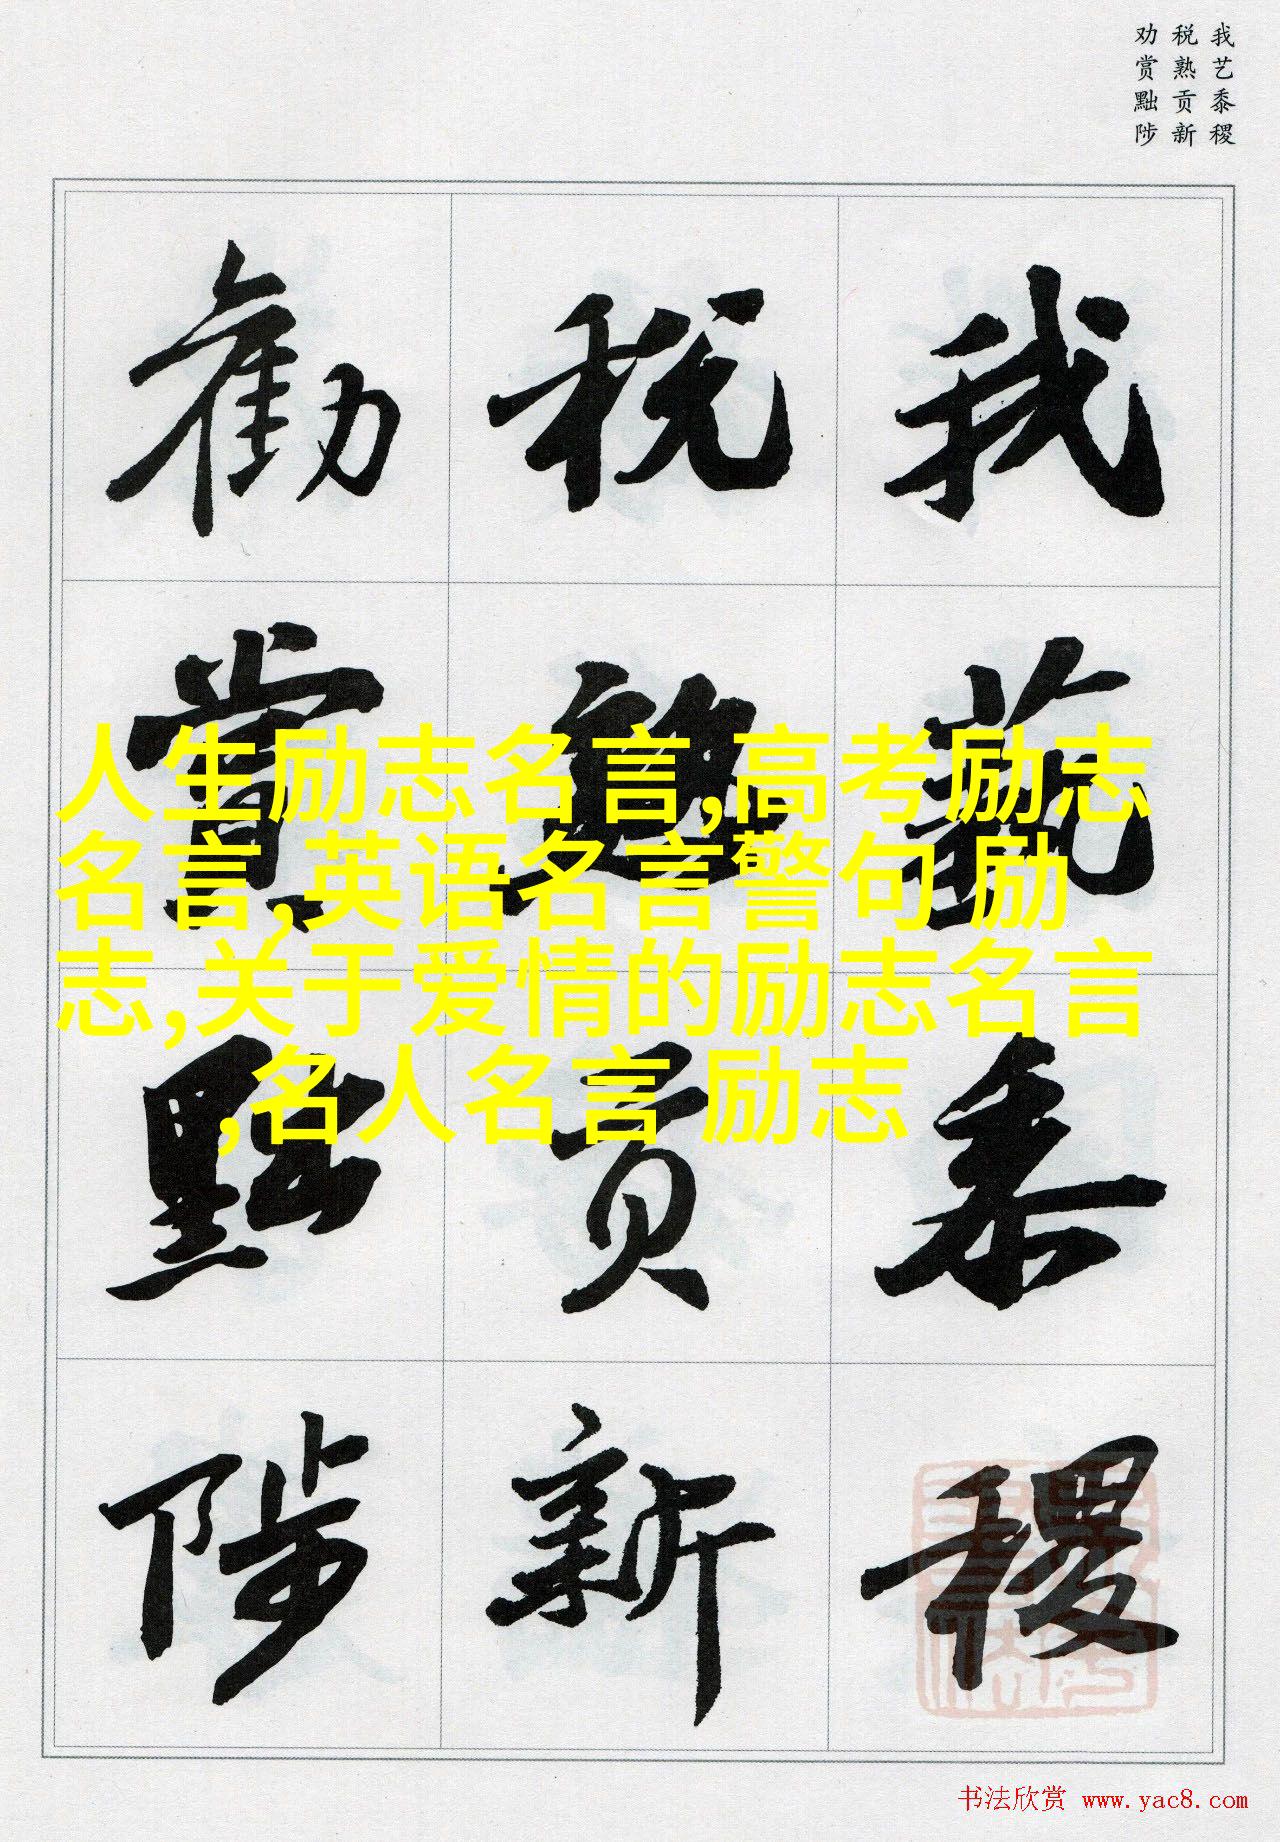 我艺黍稷
税熟贡新
劝赏黜陟
我藝黍稷
税熟貢新
勸賞黜陟
人生励志名言,高考励志
名言,英语名言警句 励
志,关于爱情的励志名言
,名人名言 励志
书法欣赏 www.yac8.com